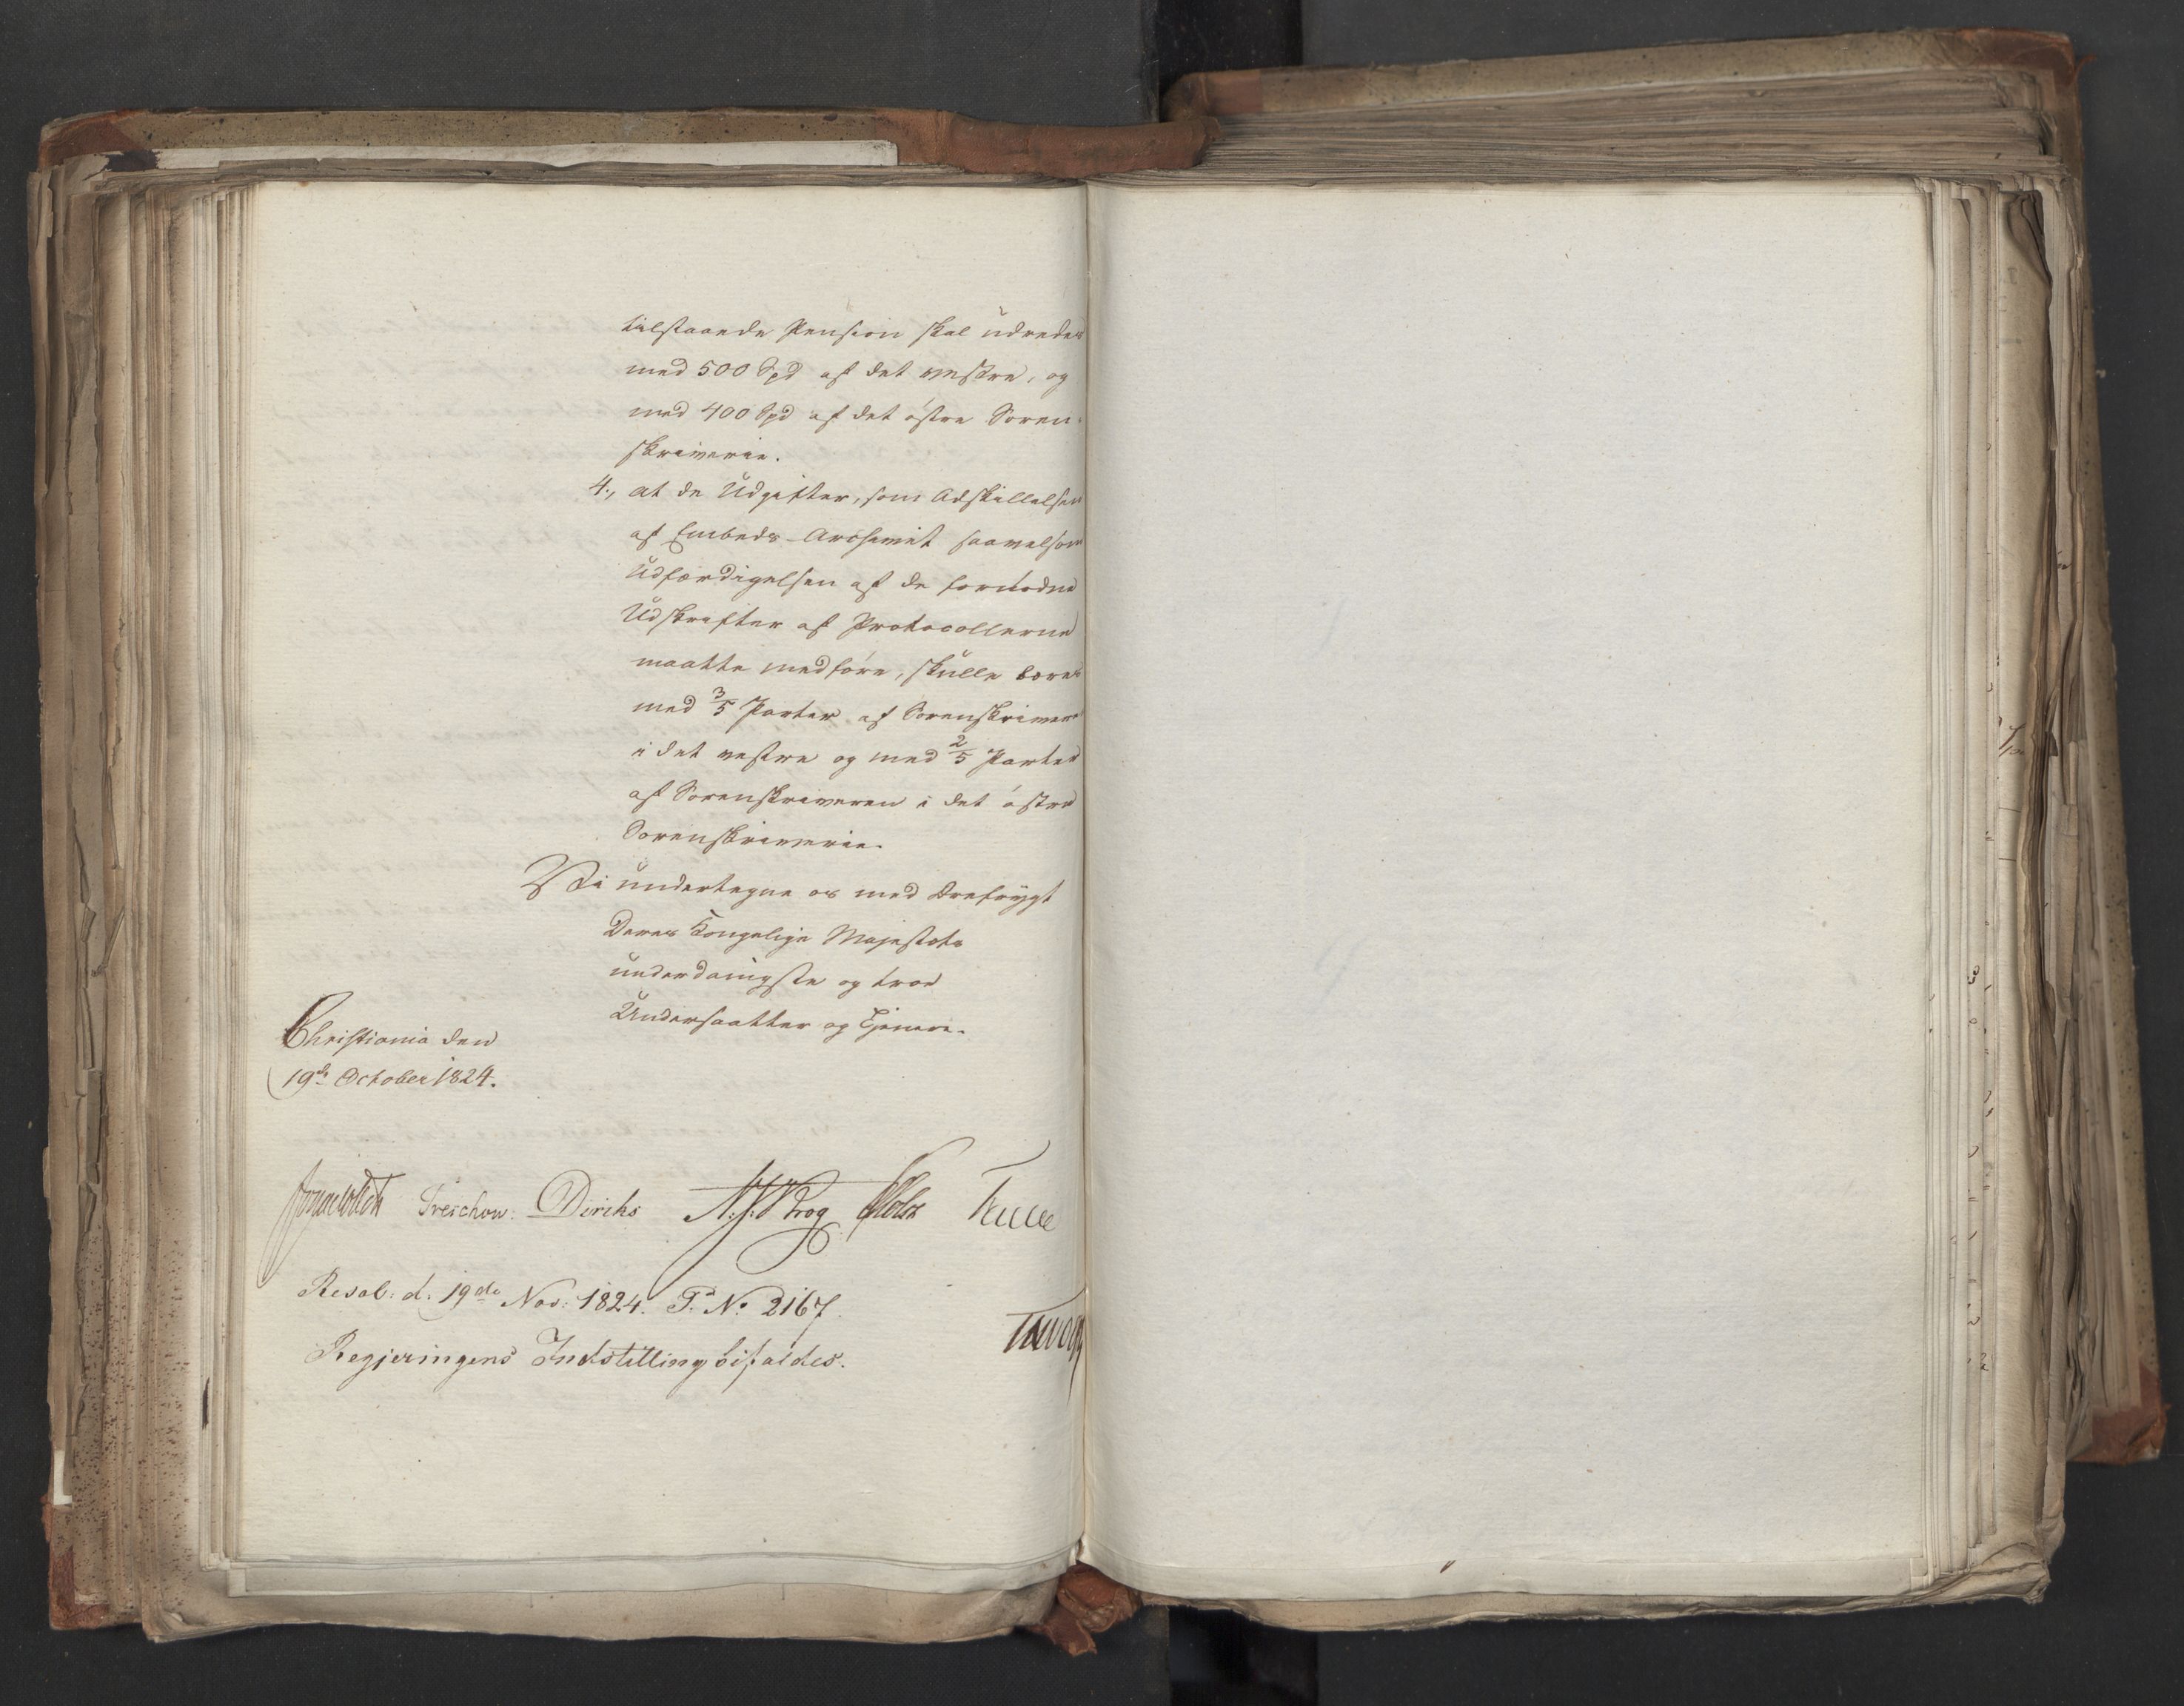 tilstaaende Pension skal udredes
med 500 Spd af det vestre, og
med 400 Spd af det østre Soren-
skriverie.
4., at de Udgifter, som Adskillelsen
af Embeds-Archivet saavelsom
Udfærdigelsen af de fornødne
Udskrifter af Protocollerne
maatte medføre, skulle bæres
med 3/5 Parter af Sorenskriveren
i det vestre og med 2/5 Parter
af Sorenskriveren i det østre
Sorenskriverie.
Vi undertegne os med Ærefrygt
Deres Kongelige Majestæts
underdanigste og troe
Undersaatter og Tjenere.
Christiania den
19de October 1824.
Treschow. Diriks N.J. Krog Holst
Resol: d. 19de Nov: 1824. P. No 2167.
Regjeringens Indstilling bifaldes.